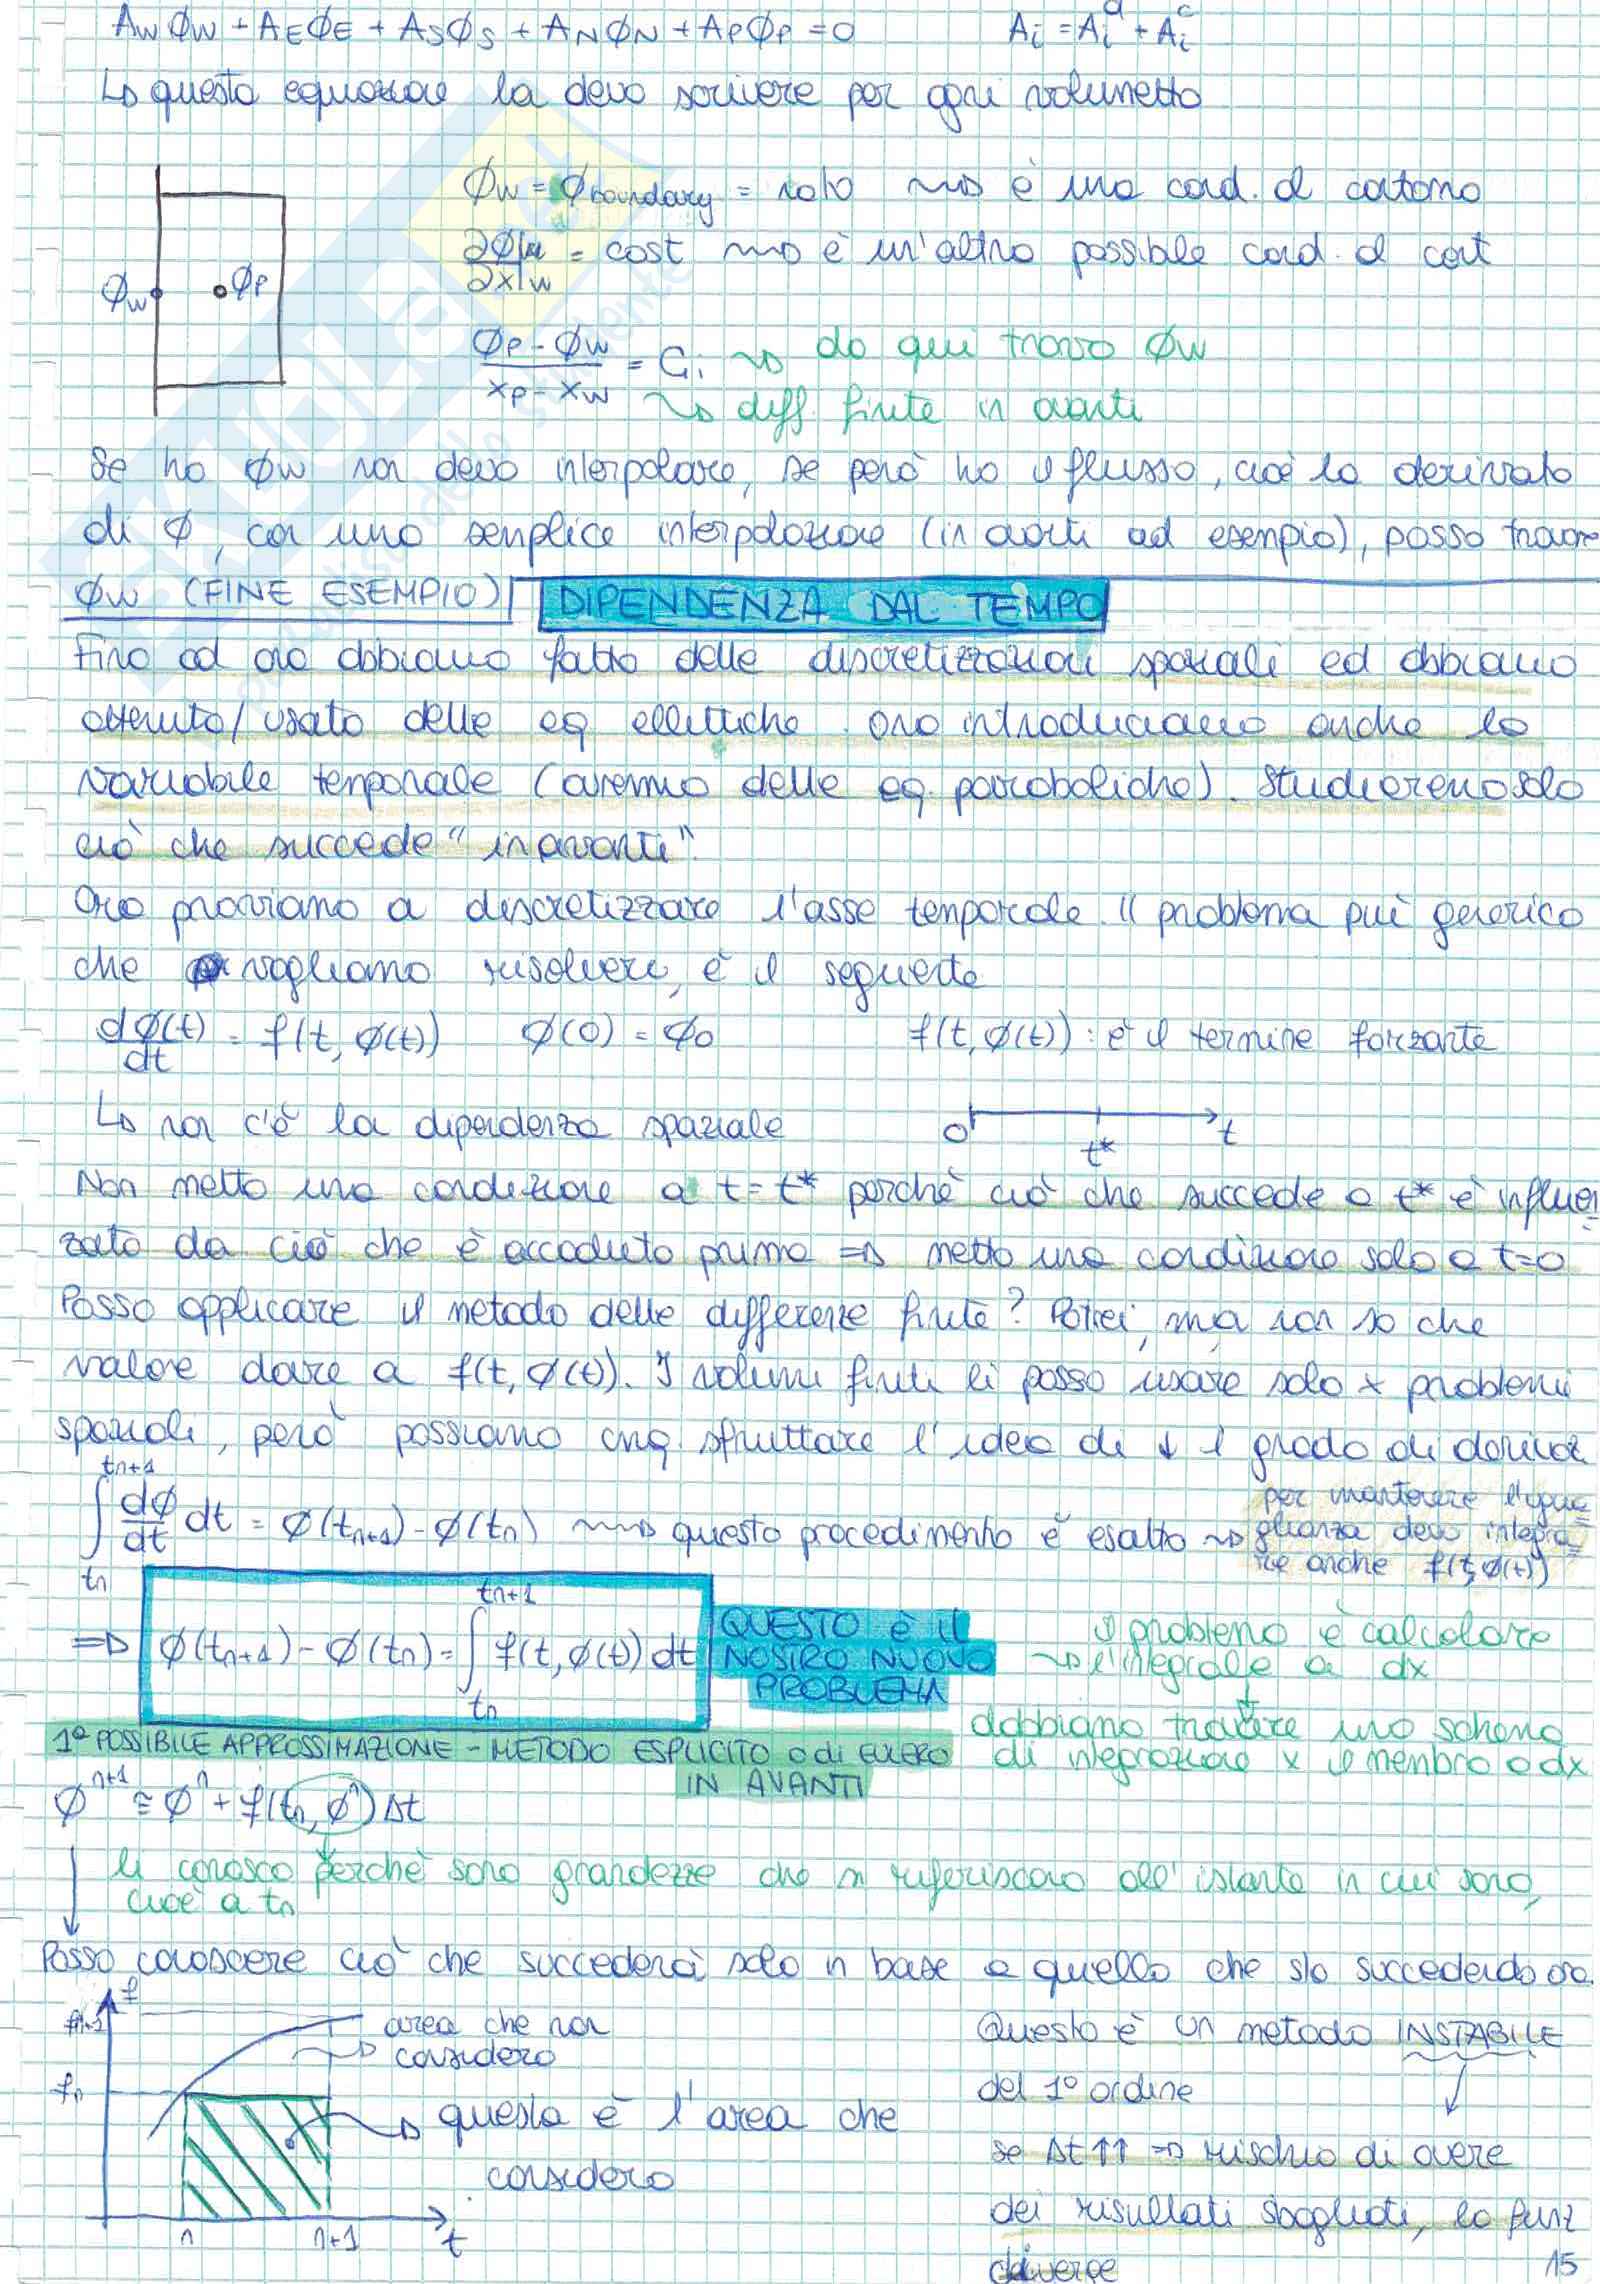 AwØw + AEØE + ASØS + ANØN + APØP = 0    Ai = Ai^d + Ai^c
↳ questa equazione la devo scrivere per ogni volumetto
Øw = Øboundary = noto ⇝ è una cond. al contorno
∂Ø/∂x|w = cost ⇝ è un'altra possibile cond. al cont
Øw   ØP
(ØP - Øw)/(xP - xw) = C1 ⇝ da qui trovo Øw
⇝ diff. finite in avanti
Se ho Øw non devo interpolare, se però ho il flusso, cioè la derivata
di Ø, con una semplice interpolazione (in avanti ad esempio), posso trovare
Øw (FINE ESEMPIO)
DIPENDENZA DAL TEMPO
Fino ad ora abbiamo fatto delle discretizzazioni spaziali ed abbiamo
ottenuto/usato delle eq ellittiche. Ora introduciamo anche la
variabile temporale (avremo delle eq. paraboliche). Studieremo solo
ciò che succede "in avanti".
Ora proviamo a discretizzare l'asse temporale. Il problema più generico
che vogliamo risolvere, è il seguente
dØ(t)/dt = f(t, Ø(t))    Ø(0) = Ø0    f(t, Ø(t)): è il termine forzante
↳ non c'è la dipendenza spaziale    0    t*    t
Non metto una condizione a t=t* perchè ciò che succede a t* è influen
zato da ciò che è accaduto prima ⇒ metto una condizione solo a t=0
Posso applicare il metodo delle differenze finite? Potrei, ma non so che
valore dare a f(t, Ø(t)). I volumi finiti li posso usare solo x problemi
spaziali, però possiamo cmq. sfruttare l'idea di ↓ il grado di derivaz
∫tn^tn+1 dØ/dt dt = Ø(tn+1) - Ø(tn) ⇝ questo procedimento è esatto ⇝
per mantenere l'ugua=
glianza devo integra=
re anche f(t, Ø(t))
⇒ Ø(tn+1) - Ø(tn) = ∫tn^tn+1 f(t, Ø(t)) dt
QUESTO è il
NOSTRO NUOVO
PROBLEMA
il problema è calcolare
⇝ l'integrale a dx
dobbiamo trovare uno schema
di integrazione x il membro a dx
1ª POSSIBILE APPROSSIMAZIONE - METODO ESPLICITO o di EULERO
IN AVANTI
Ø^n+1 ≅ Ø^n + f(tn, Ø^n) Δt
li conosco perchè sono grandezze che si riferiscono all'istante in cui sono,
cioè a tn
Posso conoscere ciò che succederà solo in base a quello che sta succedendo ora.
f
fn+1
area che non
considero
fn
questa è l'area che
considero
n    n+1    t
Questo è un metodo INSTABILE
del 1° ordine
se Δt↑↑ ⇒ rischio di avere
dei risultati sbagliati, la funz
diverge
15